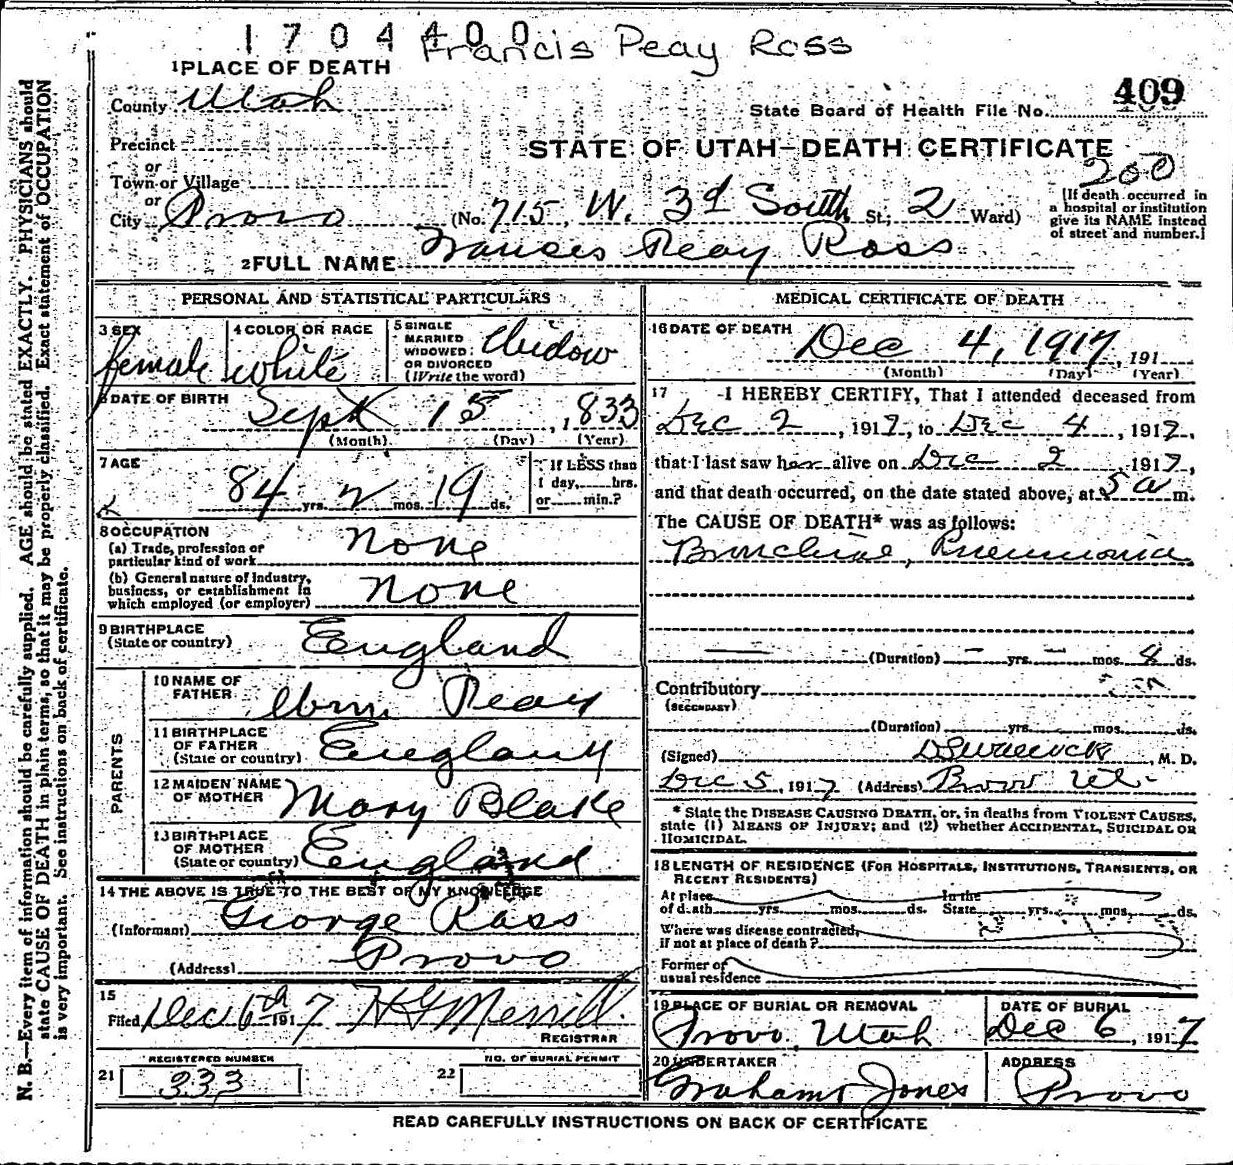 1704400 Francis Peay Ross
1 PLACE OF DEATH
409
County Utah
State Board of Health File No.
Precinct
STATE OF UTAH—DEATH CERTIFICATE
or
200
Town or Village
or
City Provo (No. 715, W. 3d South St; 2 Ward)
[If death occurred in
a hospital or institution
give its NAME instead
of street and number.]
2 FULL NAME Frances Peay Ross
PERSONAL AND STATISTICAL PARTICULARS
3 SEX female
4 COLOR OR RACE white
5 SINGLE
MARRIED
WIDOWED
OR DIVORCED
(Write the word) Widow
6 DATE OF BIRTH
Sept 15, 1833
(Month) (Day) (Year)
7 AGE
84 yrs. 2 mos. 19 ds.
If LESS than
1 day, hrs.
or min.?
8 OCCUPATION
(a) Trade, profession or
particular kind of work none
(b) General nature of Industry,
business, or establishment in
which employed (or employer) none
9 BIRTHPLACE
(State or country) England
PARENTS
10 NAME OF
FATHER Wm. Peay
11 BIRTHPLACE
OF FATHER
(State or country) England
12 MAIDEN NAME
OF MOTHER Mary Blake
13 BIRTHPLACE
OF MOTHER
(State or country) England
14 THE ABOVE IS TRUE TO THE BEST OF MY KNOWLEDGE
(Informant) George Ross
(Address) Provo
15
Filed Dec 6th 1917 H G Merrill
REGISTRAR
REGISTERED NUMBER
21 333
NO. OF BURIAL PERMIT
22
MEDICAL CERTIFICATE OF DEATH
16 DATE OF DEATH
Dec 4, 1917, 191
(Month) (Day) (Year)
17 I HEREBY CERTIFY, That I attended deceased from
Dec 2, 1917, to Dec 4, 1917,
that I last saw her alive on Dec 2 1917,
and that death occurred, on the date stated above, at 5 a m.
The CAUSE OF DEATH* was as follows:
Pneumonia
(Duration) yrs. mos. 8 ds.
Contributory
(SECONDARY)
(Duration) yrs. mos. ds.
(Signed) M. D.
Dec 5, 1917 (Address) Provo Ut.
* State the DISEASE CAUSING DEATH, or, in deaths from VIOLENT CAUSES,
state (1) MEANS OF INJURY; and (2) whether ACCIDENTAL, SUICIDAL OR
HOMICIDAL.
18 LENGTH OF RESIDENCE (FOR HOSPITALS, INSTITUTIONS, TRANSIENTS, OR
RECENT RESIDENTS)
At place In the
of death yrs. mos. ds. State yrs. mos. ds.
Where was disease contracted,
if not at place of death?
Former or
usual residence
19 PLACE OF BURIAL OR REMOVAL
Provo, Utah
DATE OF BURIAL
Dec 6, 1917
20 UNDERTAKER
Graham Jones
ADDRESS
Provo
READ CAREFULLY INSTRUCTIONS ON BACK OF CERTIFICATE
N. B.—Every item of information should be carefully supplied. AGE should be stated EXACTLY. PHYSICIANS should
state CAUSE OF DEATH in plain terms, so that it may be properly classified. Exact statement of OCCUPATION
is very important. See instructions on back of certificate.